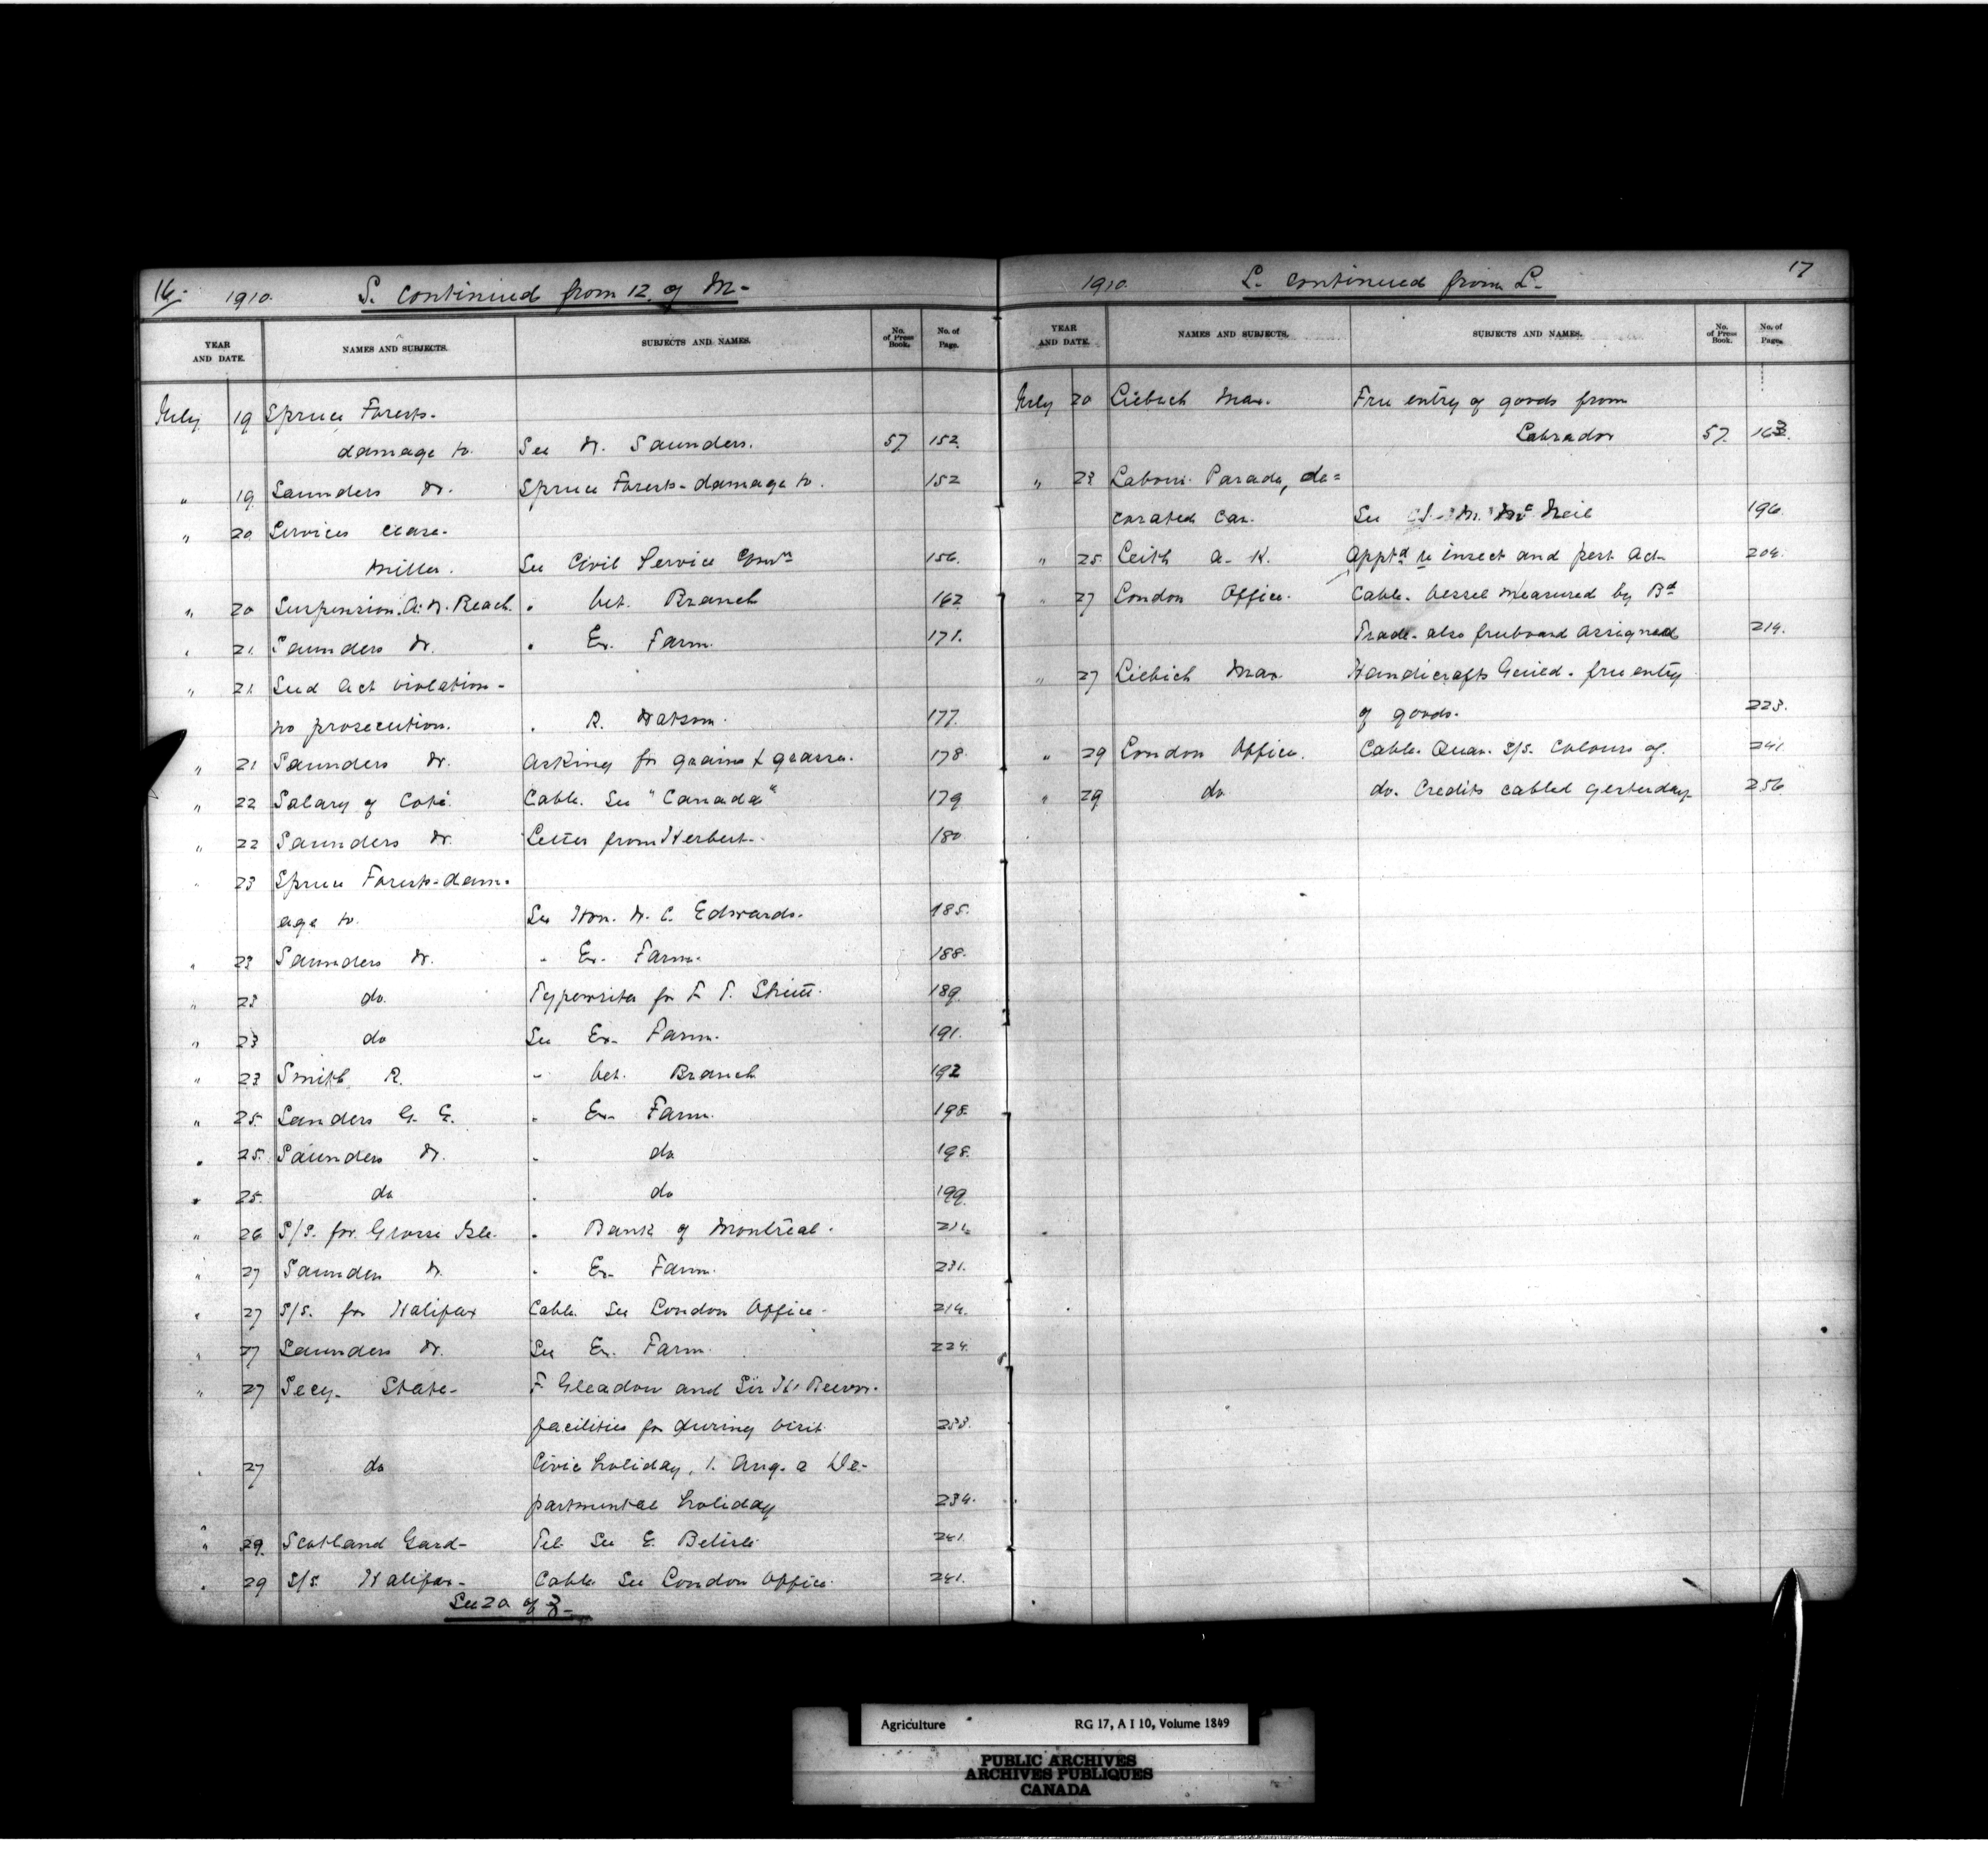 16 1910. S. continued from 12 of M-
YEAR AND DATE. NAMES AND SUBJECTS. SUBJECTS AND NAMES. No. of Press Book. No. of Page.
July 19 Spruce Forests-
damage to. See W. Saunders. 57. 152.
" 19 Saunders W. Spruce Forests- damage to. 152
" 20 Services
Miller. See Civil Service Comrn 156.
" 20 Suspension. A. W. Reach. " Vet. Branch 162
" 21 Saunders W. " Ex. Farm. 171.
" 21 Seed Act violation-
no prosecution. " R. Watson. 177.
" 21 Saunders W. Asking for grains & grasses. 178
" 22 Salary of Coté. Cable. See "Canada" 179
" 22 Saunders W. Letter from Herbert. 180
" 23 Spruce Forests-dam-
age to. See Hon. W. C. Edwards. 185.
" 23 Saunders W. " Ex. Farm. 188.
" 23 do. Typewriter for F. T. Shutt. 189.
" 23 do See Ex. Farm. 191.
" 23 Smith R. " Vet. Branch 192
" 25. Sanders G. E. " Ex. Farm. 198.
" 25. Saunders W. " do 198.
" 25. do " do 199.
" 26 S/S. for Grosse Isle. " Bank of Montreal.
" 27 Saunders W. " Ex. Farm. 231.
" 27 S/S. for Halifax Cable. See London Office. 214.
" 27 Saunders W. See Ex. Farm. 224.
" 27 Secy. State- F. Gleadow and Sir H.
facilities for during visit. 233.
" 27 do Civic holiday, 1. Aug. a De-
partmental holiday 234.
" 29. Scotland Gard- Tel. See E. Belisle 241.
" 29 S/S. Halifax- Cable. See London Office. 241.
See 20 of
1910. L. continued from L- 17
YEAR AND DATE. NAMES AND SUBJECTS. SUBJECTS AND NAMES. No. of Press Book. No. of Page.
July 20 Liebich Max. Free entry of goods from
Labrador 57. 163.
" 23 Labour Parade, de=
corated car. See Mc Neil 196.
" 25. Leith A. K. Apptd re insect and pest Act 204.
" 27 London Office. Cable. Vessel measured by Bd
Trade- also freeboard assigned 214.
" 27 Liebich Max. Handicrafts Guild- free entry
of goods. 223.
" 29 London Office. Cable. Quar. S/S. Colours of. 241.
" 29 do do. Credits cabled yesterday 256
Agriculture RG 17, A I 10, Volume 1849
PUBLIC ARCHIVES
ARCHIVES PUBLIQUES
CANADA